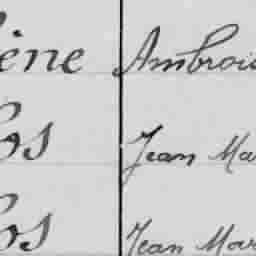 ène Ambroi
os Jean Mar
os Jean Mar